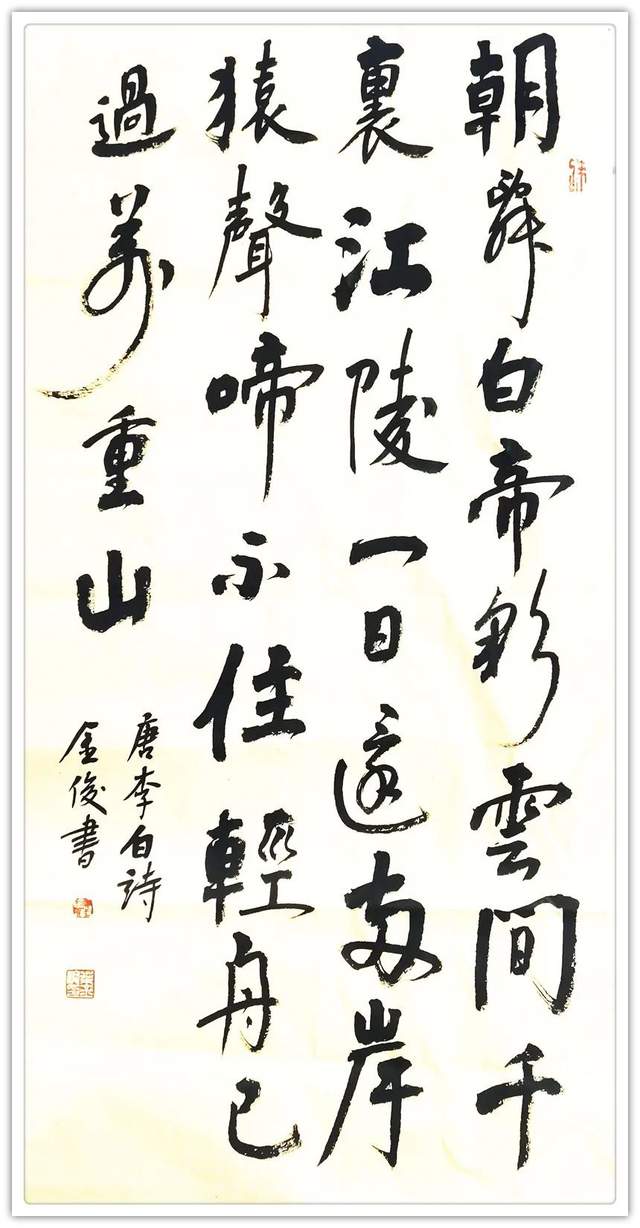 朝辤白帝彩雲間千
裏江陵一日還兩岸
猿聲啼不住輕舟已
過萬重山
唐李白詩
金俊書